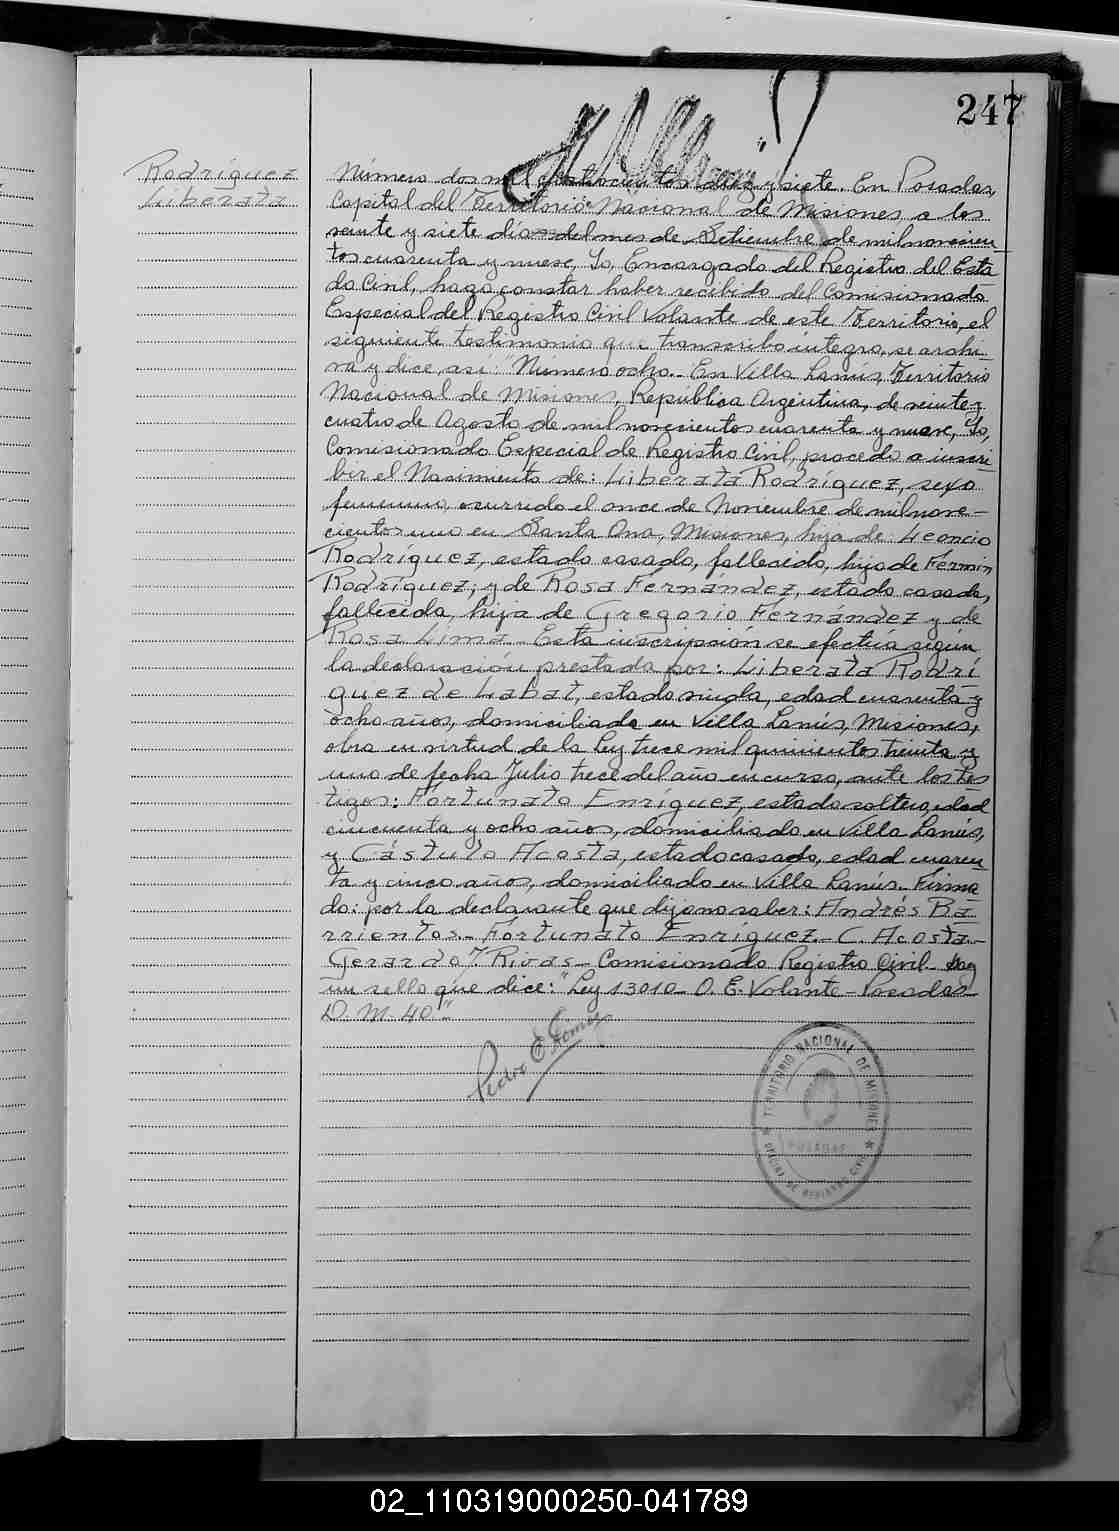 247
Rodríguez
Liberata
Número dos mil cuatrocientos diez y siete. En Posadas,
Capital del Territorio Nacional de Misiones a los
veinte y siete días del mes de Setiembre de mil novecien
tos cuarenta y nueve, Yo, Encargado del Registro del Esta
do Civil, hago constar haber recibido del Comisionado
Especial del Registro Civil Volante de este Territorio, el
siguiente testimonio que transcribo íntegro, se archi
va y dice así: "Número ocho.- En Villa Lanús, Territorio
Nacional de Misiones, República Argentina, de veinte y
cuatro de Agosto de mil novecientos cuarenta y nueve, Yo,
Comisionado Especial de Registro Civil, procedo a inscri
bir el Nacimiento de: Liberata Rodríguez, sexo
femenino, ocurrido el once de Noviembre de mil nove-
cientos uno en Santa Ana, Misiones, hija de: Leoncio
Rodríguez, estado casado, fallecido, hijo de Fermín
Rodríguez; y de Rosa Fernández, estado casada,
fallecida, hija de Gregorio Fernández y de
Rosa Lima - Esta inscripción se efectúa según
la declaración prestada por: Liberata Rodrí
guez de Labat, estado viuda, edad cuarenta y
ocho años, domiciliada en Villa Lanús, Misiones,
obra en virtud de la Ley trece mil quinientos treinta y
uno de fecha Julio trece del año en curso, ante los tes
tigos: Fortunato Enríquez, estado soltero, edad
cincuenta y ocho años, domiciliado en Villa Lanús,
y Cástulo Acosta, estado casado, edad cuaren
ta y cinco años, domiciliado en Villa Lanús.- Firma
do: por la declarante que dijo no saber: Andrés Ba
rrientos.- Fortunato Enríquez.- C. Acosta.-
Gerardo J. Rivas - Comisionado Registro Civil - Hay
un sello que dice: "Ley 13010 - O. E. Volante - Posadas
D. M. 40".
Pedro E. Gómez
TERRITORIO NACIONAL DE MISIONES
POSADAS
OFICINA DE REGISTRO CIVIL
02_110319000250-041789